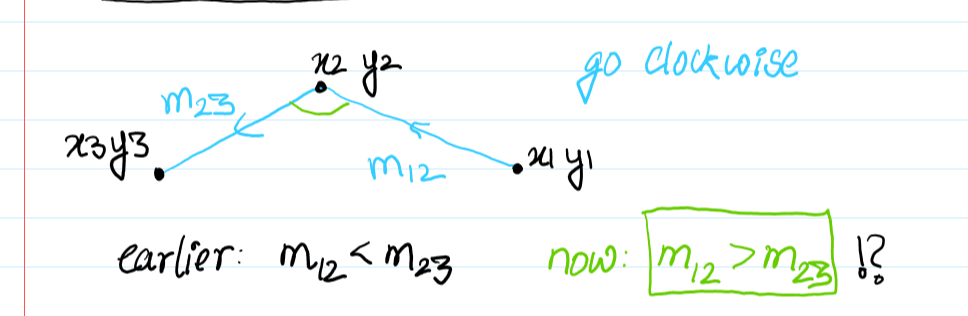 x2 y2
go clockwise
m23
x3y3
m12
x1 y1
earlier: m12 < m23 now: m12 > m23 !?